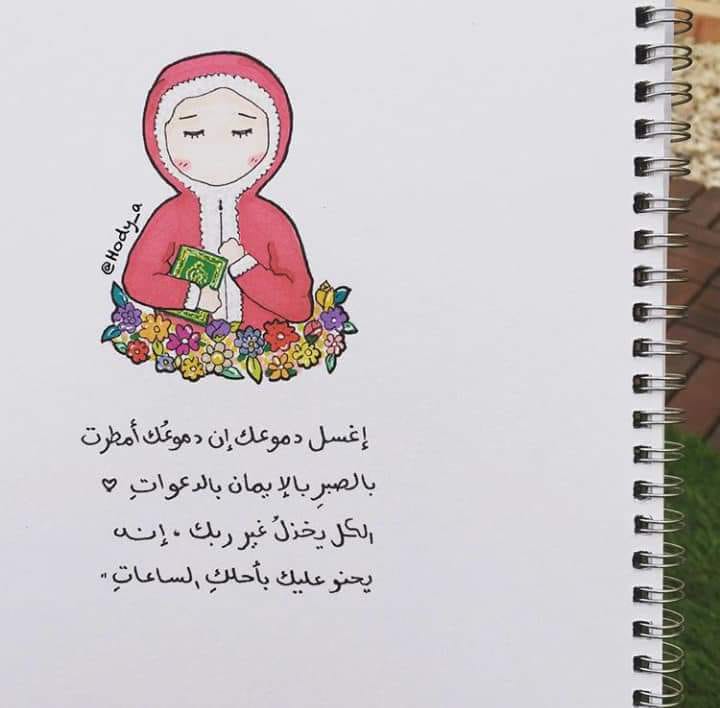 @Hody_a
إغسل دموعك إن دموعُك أمطرت
بالصبرِ بالإيمان بالدعواتِ ♡
الكل يخذلُ غير ربك ، إنه
يحنو عليك بأحلكِ الساعاتِ "